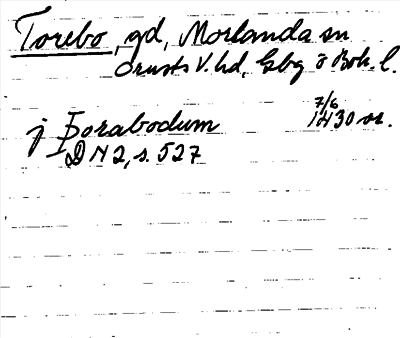 Torebo, gd, Morlanda sn
Orusts V. hd, Gbg o Boh. l.
j Þorabodum 7/6 1430 or.
DN 2, s. 527